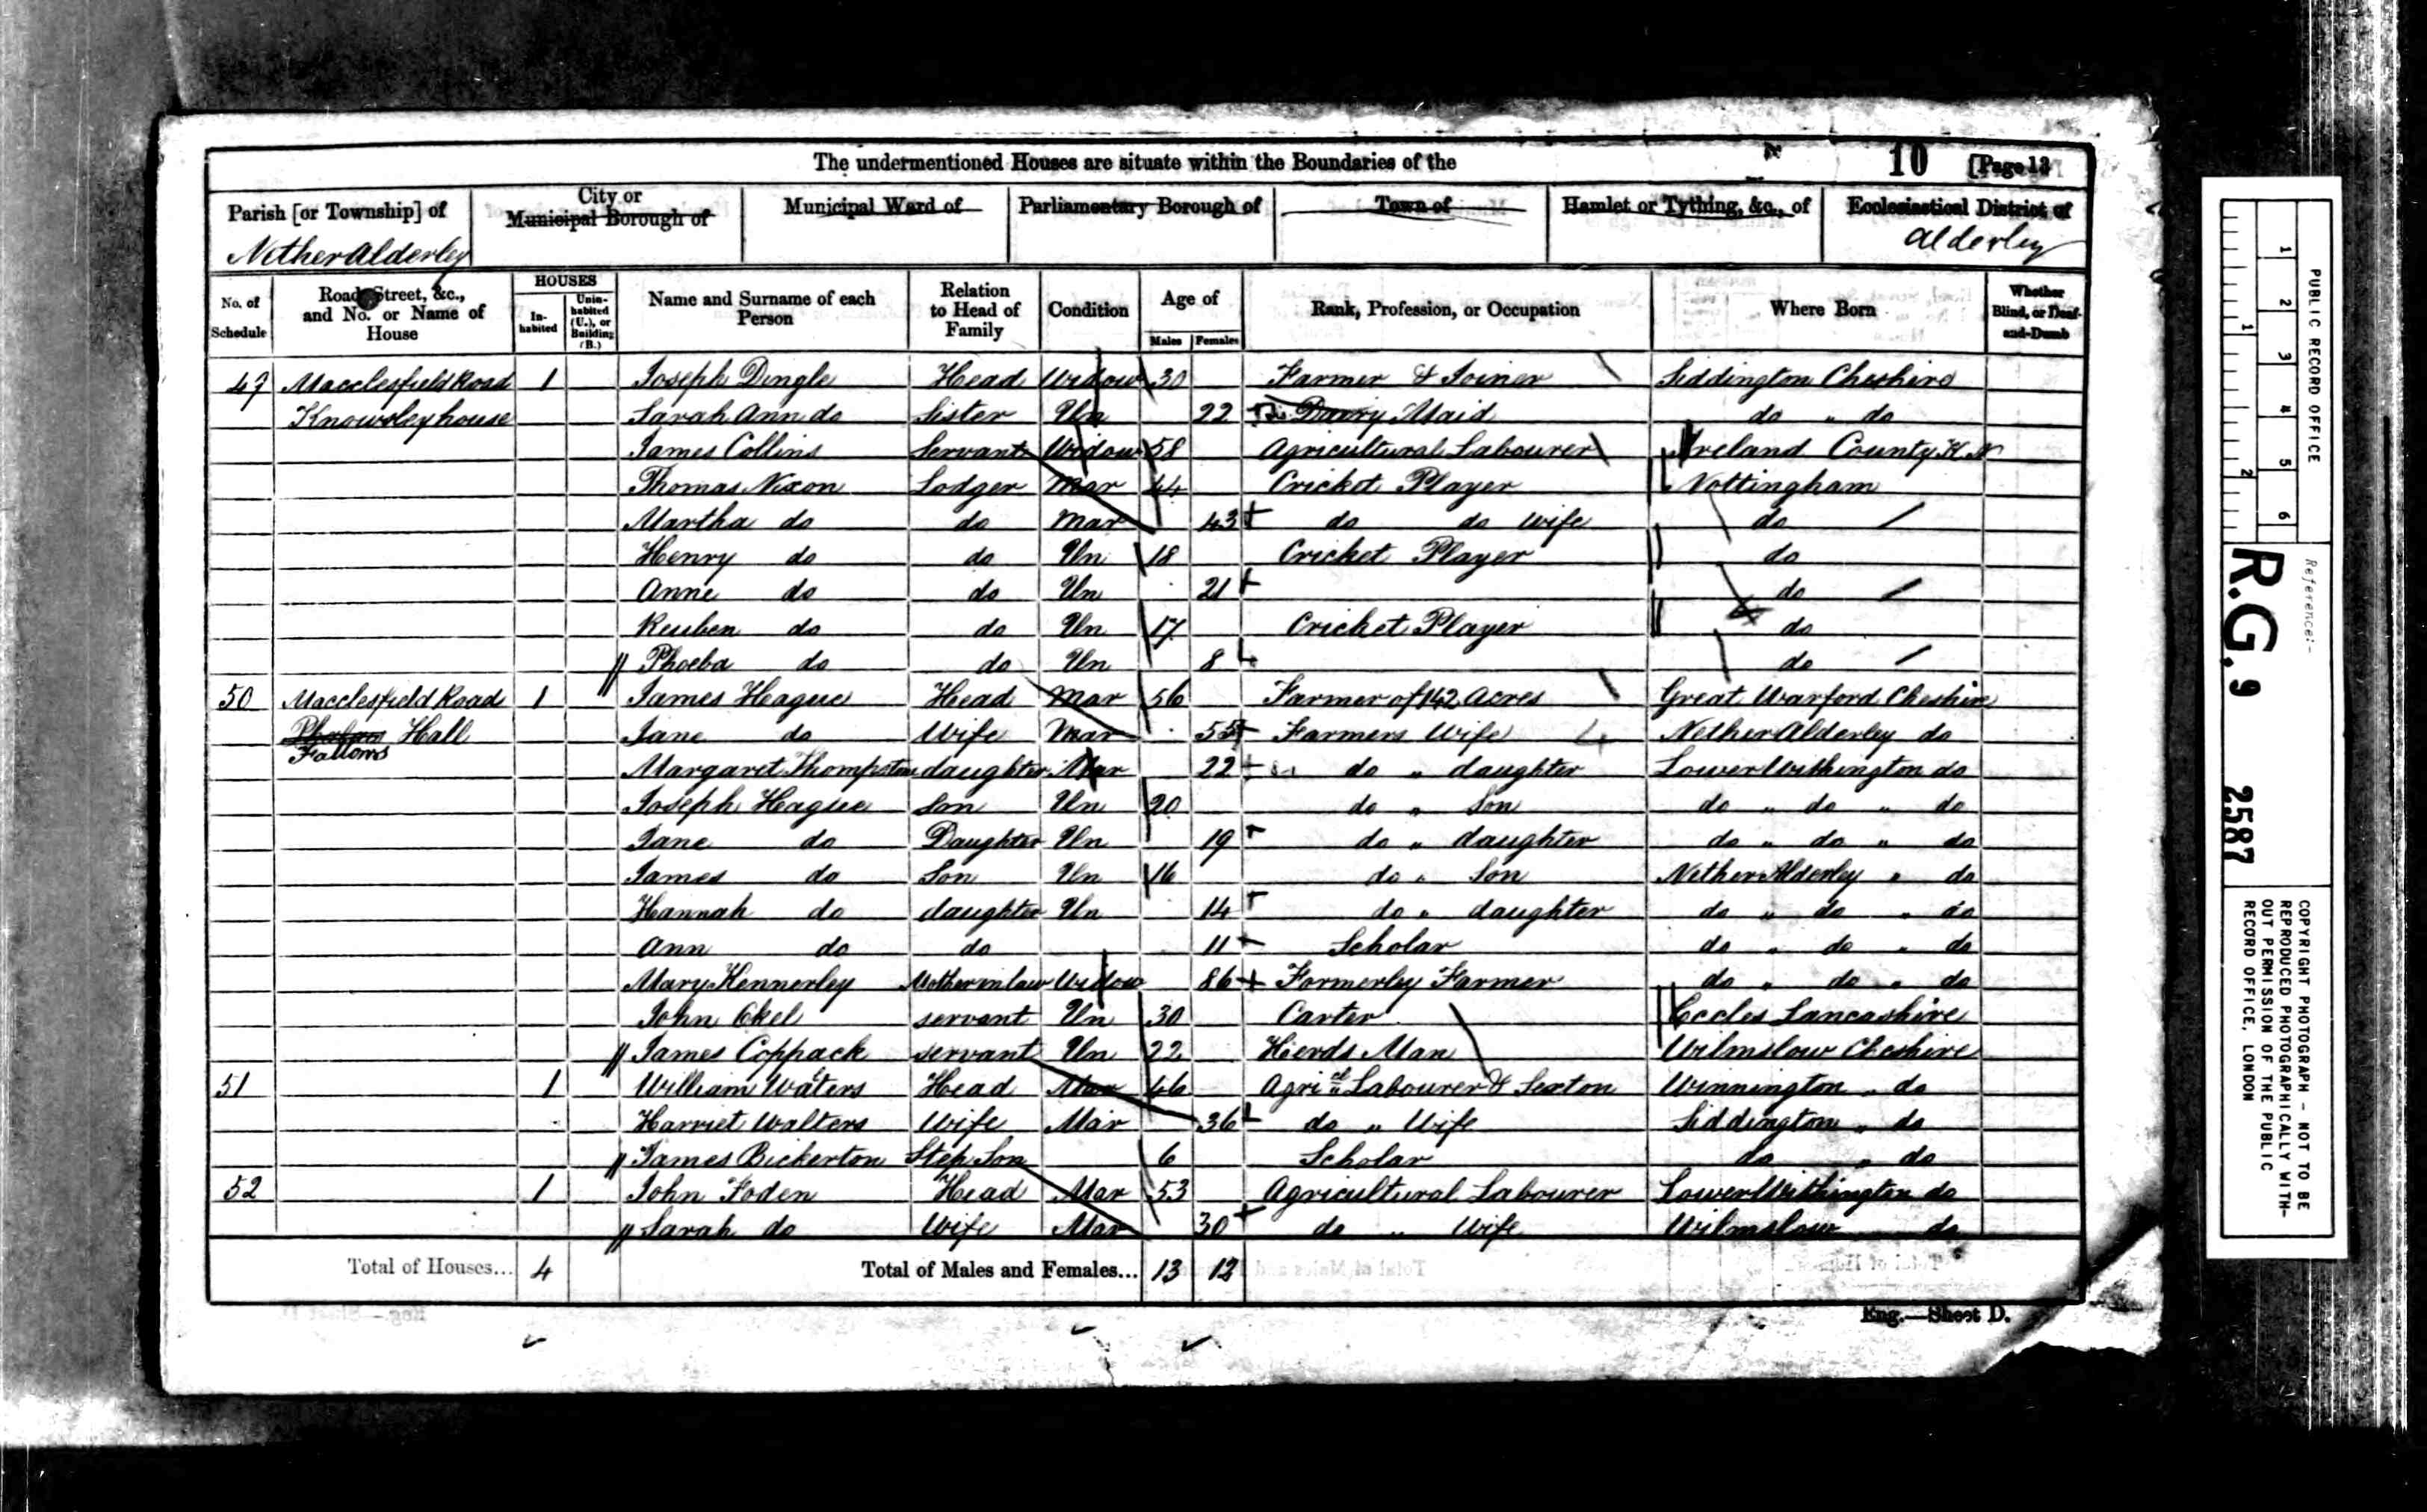 The undermentioned Houses are situate within the Boundaries of the 10 [Page 13
Parish [or Township] of City or Municipal Borough of Municipal Ward of Parliamentary Borough of Town of Hamlet or Tything, &c., of Ecclesiastical District of
Nether Alderley Alderley
No. of Schedule Road, Street, &c., and No. or Name of House HOUSES Inhabited Uninhabited (U.), or Building (B.) Name and Surname of each Person Relation to Head of Family Condition Age of Males Females Rank, Profession, or Occupation Where Born Whether Blind, or Deaf-and-Dumb
Macclesfield Road 1 Joseph Dingle Head Widow 30 Farmer & Joiner Siddington Cheshire
Knowsley house Sarah Ann do Sister Un 22 Dairy Maid do " do
James Collins Servant Widow 58 Agricultural Labourer Ireland County
Thomas Nixon Lodger Mar 44 Cricket Player Nottingham
Martha do do Mar 43 do do wife do
Henry do do Un 18 Cricket Player do
Anne do do Un 21 do
Reuben do do Un 17 Cricket Player do
Phoeba do do Un 8 do
50 Macclesfield Road 1 James Hague Head Mar 56 Farmer of 142 Acres Great Warford Cheshire
Hall Jane do Wife Mar 55 Farmers Wife Nether Alderley do
Fallows Margaret Thompstone daughter Mar 22 do " daughter Lower Withington do
Joseph Hague Son Un 20 do " Son do " do " do
Jane do Daughter Un 19 do " daughter do " do " do
James do Son Un 16 do " Son Nether Alderley " do
Hannah do daughter Un 14 do " daughter do " do " do
Ann do do 11 Scholar do " do " do
Mary Kennerley Mother in law Widow 86 Formerley Farmer do " do " do
John servant Un 30 Carter Eccles Lancashire
James Coppack servant Un 22 Hierds Man Wilmslow Cheshire
51 1 William Waters Head Mar 46 Agri Labourer & Sexton Winnington " do
Harriet Walters Wife Mar 36 do " Wife Siddington " do
James Bickerton Step Son 6 Scholar do " do
52 1 John Foden Head Mar 53 Agricultural Labourer Lower Withington do
Sarah do Wife Mar 30 do " Wife Wilmslow do
Total of Houses... 4 Total of Males and Females... 13 12
Eng.—Sheet D.
PUBLIC RECORD OFFICE
1 2 3 4 5 6
1 2
Reference:-
R.G. 9 2587
COPYRIGHT PHOTOGRAPH - NOT TO BE
REPRODUCED PHOTOGRAPHICALLY WITH-
OUT PERMISSION OF THE PUBLIC
RECORD OFFICE, LONDON